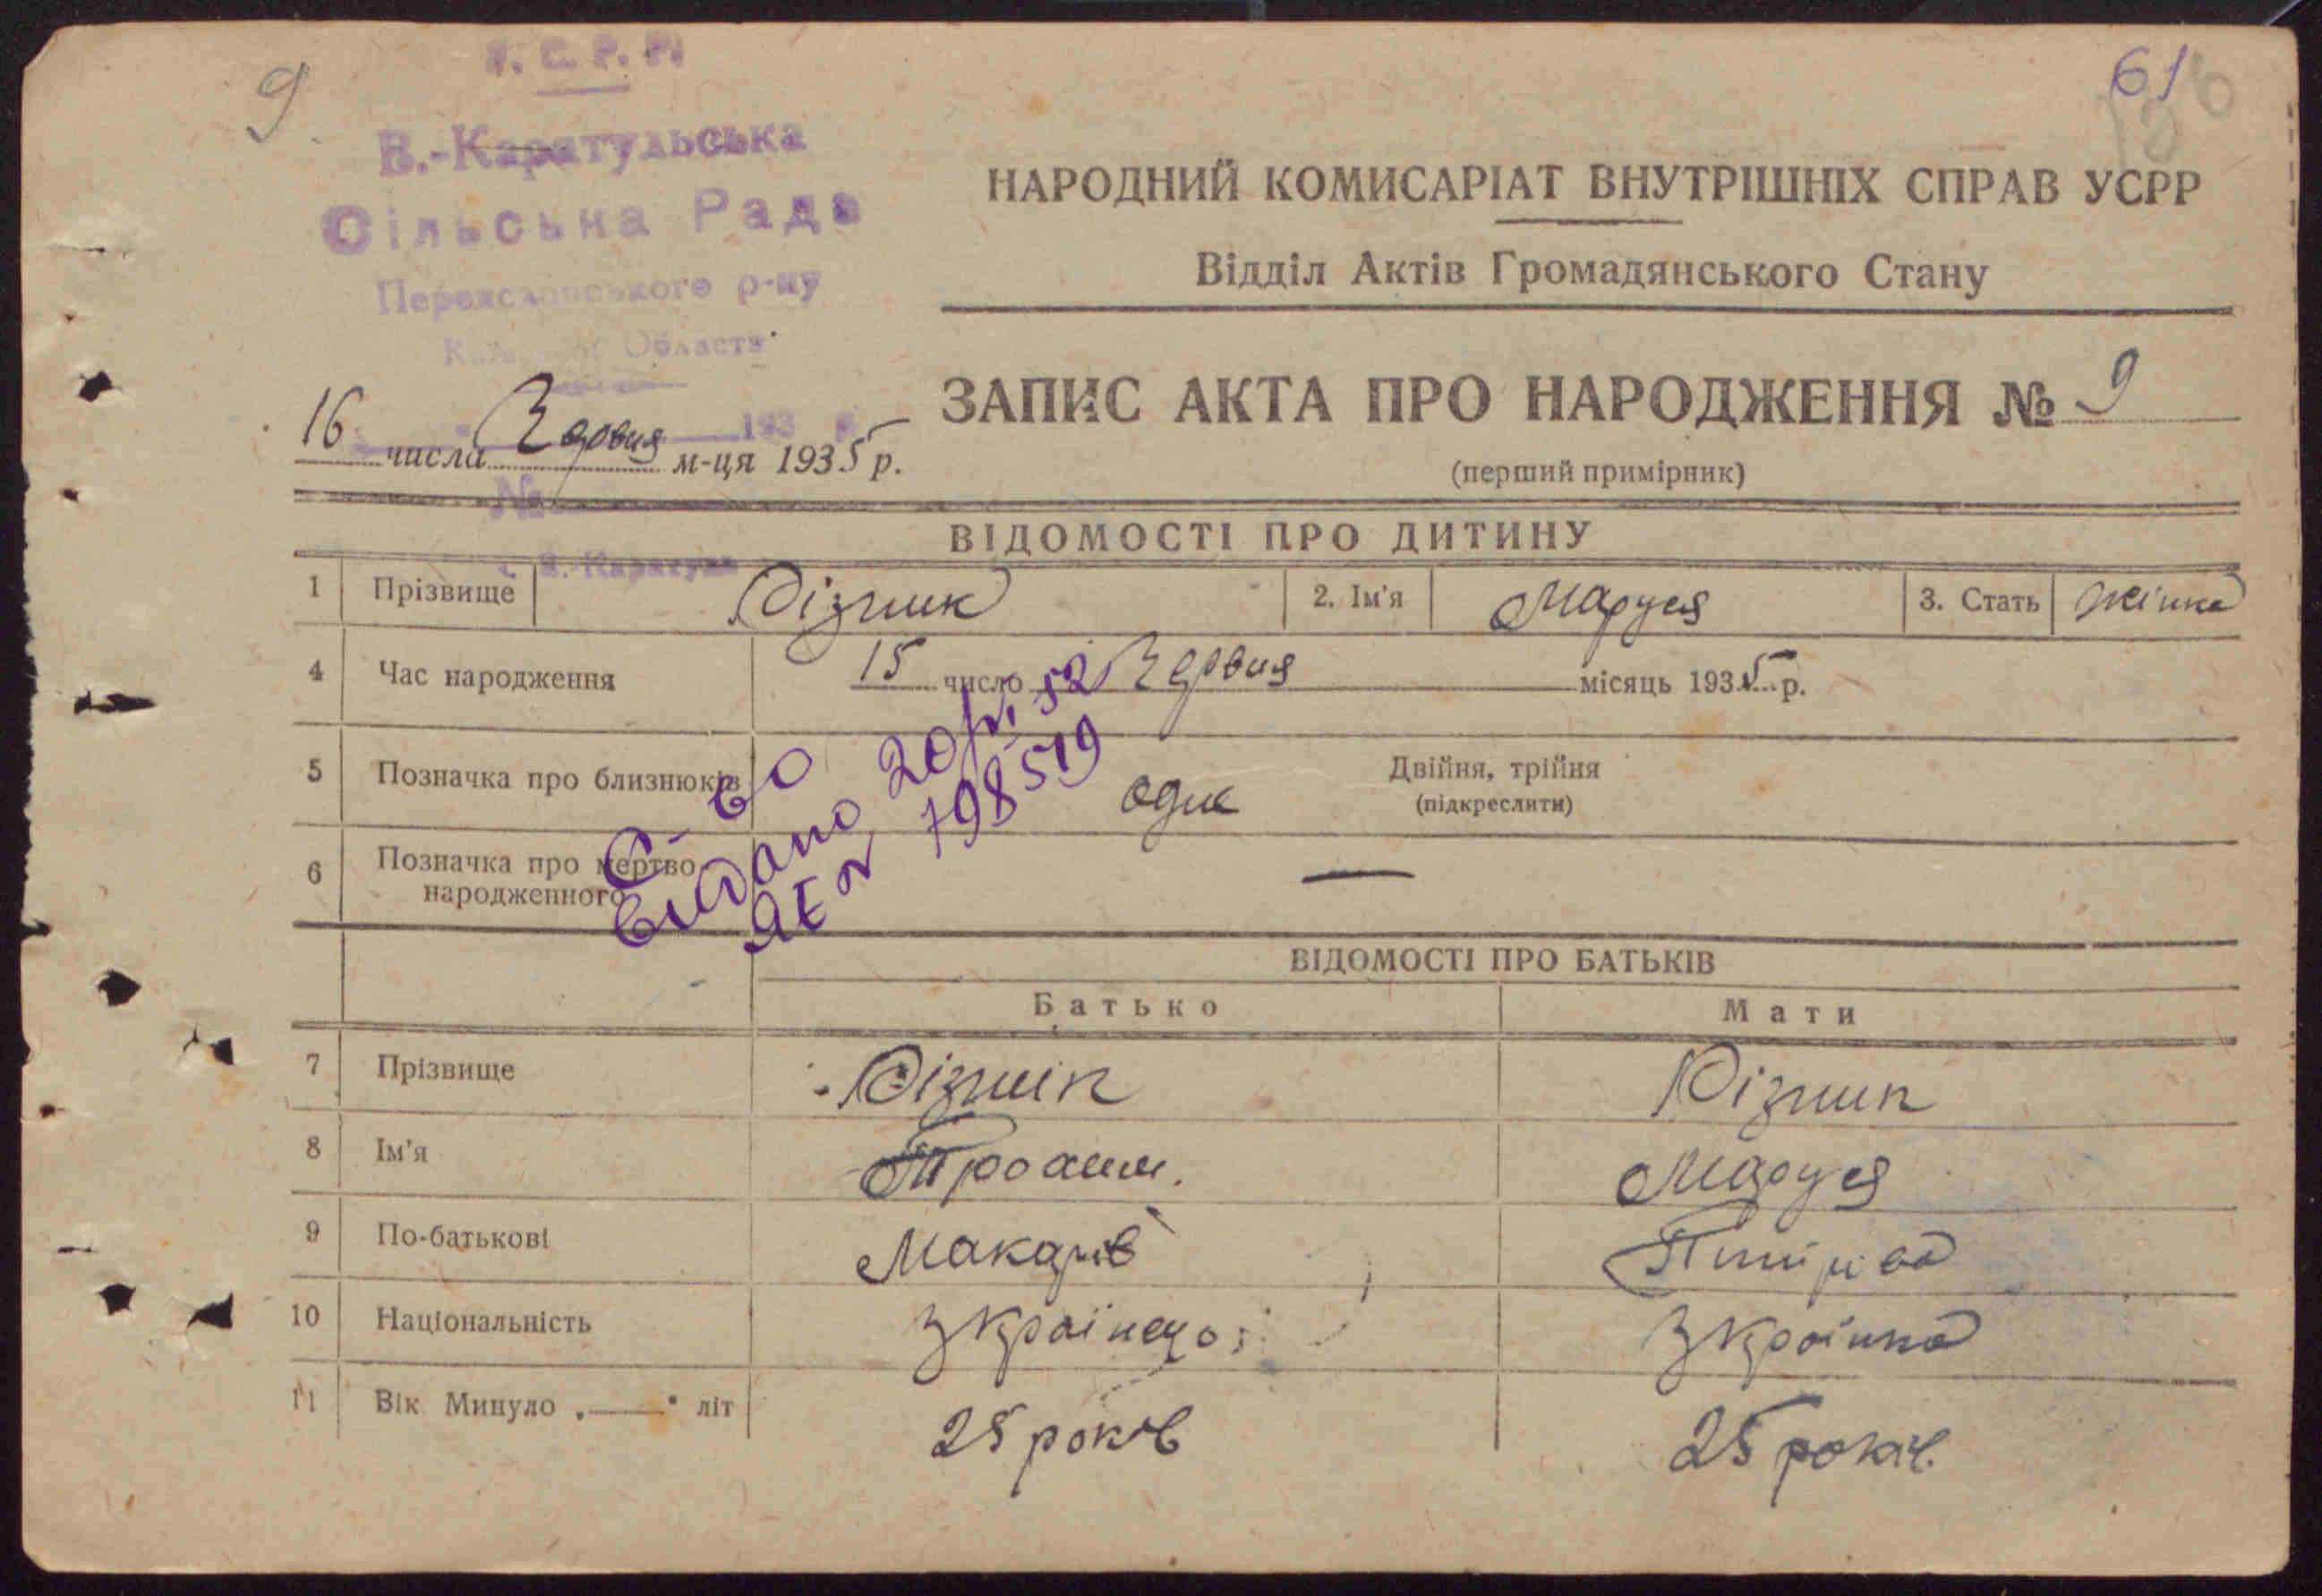 У. С. Р. Р.
9
61
В.-Каратульська
Сільська Рада
Переяславського р-ну
Київської Области
НАРОДНИЙ КОМИСАРІАТ ВНУТРІШНІХ СПРАВ УСРР
Відділ Актів Громадянського Стану
ЗАПИС АКТА ПРО НАРОДЖЕННЯ № 9
(перший примірник)
16 числа Червня м-ця 1935 р.
193 р.
№
с. В.-Каратуль
ВІДОМОСТІ ПРО ДИТИНУ
1 Прізвище Різник 2. Ім'я Маруся 3. Стать жінка
4 Час народження 15 число Червня місяць 1935 р.
5 Позначка про близнюків одне Двійня, трійня
(підкреслити)
6 Позначка про мертво
народженного —
С-60
Видано 20/VI 52
ЯЕ № 798519
ВІДОМОСТІ ПРО БАТЬКІВ
Батько Мати
7 Прізвище Різник Різник
8 Ім'я Трохим. Маруся
9 По-батькові Макарів
10 Національність Українець Українка
11 Вік Минуло „——" літ 25 років 25 років.